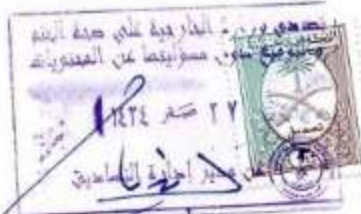 تصدق وزارة الخارجية على صحة الختم
والتوقيع دون مسؤوليتها عن المحتويات
٢٧ صفر ١٤٣٤
عن مدير إدارة التصاديق